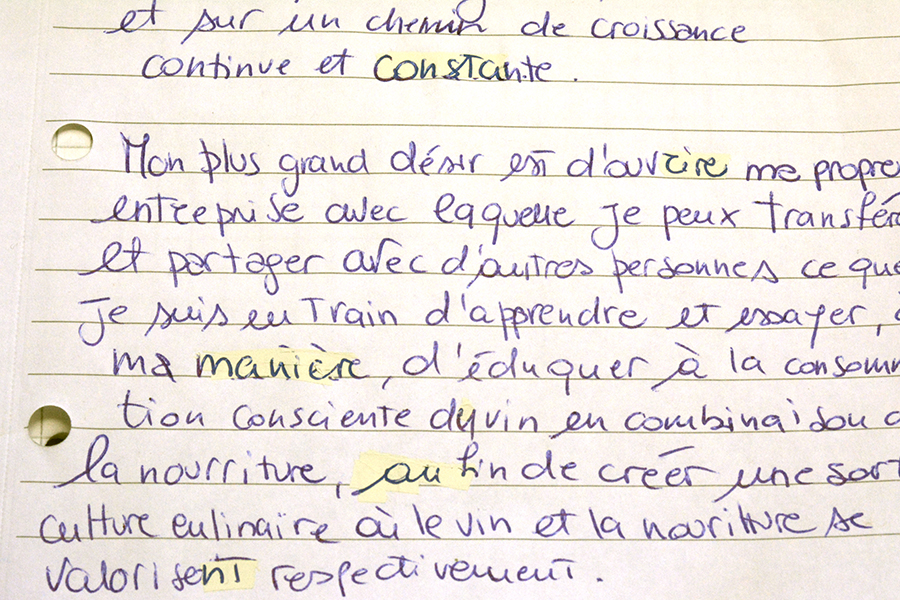 et sur un chemin de croissance
continue et constante.
Mon plus grand désir est d'ouvrire me propre
entreprise avec laquelle je peux transfér
et partager avec d'autres personnes ce que
je suis en train d'apprendre et essayer,
ma manière, d'éduquer à la consomm
tion consciente du vin en combinaison d
la nourriture, au fin de créer une sort
culture culinaire où le vin et la nouriture se
valorisent respectivement.